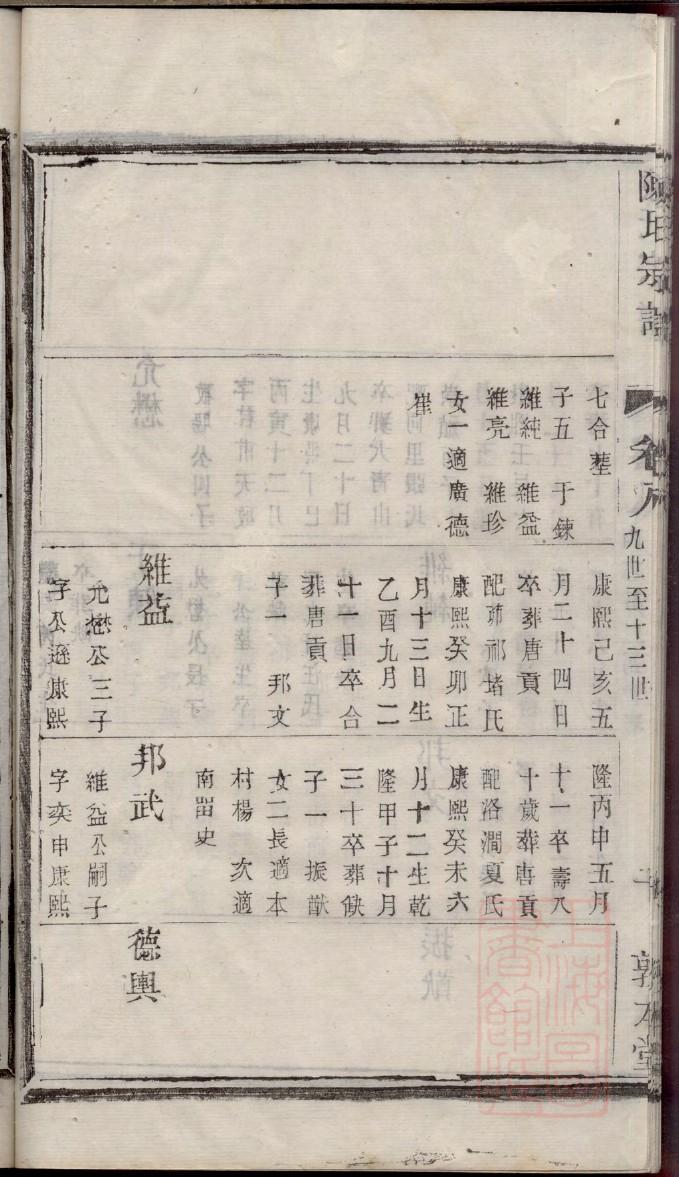 陳氏宗譜
卷
九世至十三世
敦本堂
七合塟
子五　于鍊
維純　維益
維亮　維珍
女一適廣德
崔
康熙己亥五
月二十四日
卒葬唐貢
配茆祁堵氏
康熙癸卯正
月十三日生
乙酉九月二
十一日卒合
葬唐貢
子一　邦文
維益
允懋公三子
字公遜康熙
隆丙申五月
十一卒壽八
十歲葬唐貢
配洛澗夏氏
康熙癸未六
月十二生乾
隆甲子十月
三十卒葬缺
子一　振猷
女二長適本
村楊　次適
南畱史
邦武
維益公嗣子
字奕申康熙
德輿